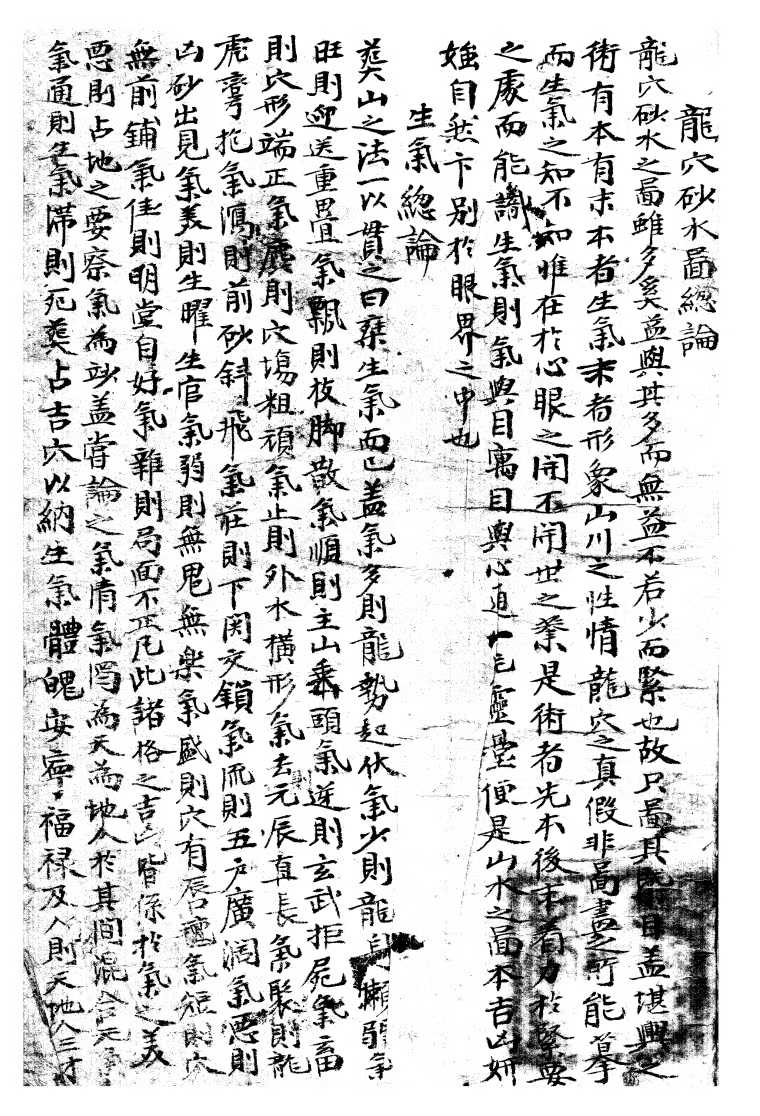 龍穴砂水啚緫論
龍穴砂水之啚雖多奚益與其多而無益不若少而緊也故只啚其目盖堪輿之
術有本有末本者生氣末者形象山川之性情龍穴之真假非啚畫之所能摹
而生氣之知不知惟在於心眼之開不開世之業是術者先本後末着力於緊要
之處而能識生氣則氣與目寓目與心通一靈臺便是山水之啚本吉凶妍
媸自然卞別於眼界之中也
生氣緫論
葬山之法一以貫之曰乘生氣而已盖氣多則龍勢起伏氣少則龍身懶弱氣
旺則迎送重疊氣飄則枝脚散氣順則主山垂頭氣逆則玄武拒屍氣畜
則穴形端正氣麁則穴塲粗頑氣止則外水橫形氣去元辰直長氣聚則龍
虎彎抱氣瀉則前砂斜飛氣莊則下関交鎖氣流則五戶廣濶氣惡則
凶砂出見氣美則生曜生官氣弱則無鬼無樂氣盛則穴有唇氣短則穴
無前鋪氣佳則明堂自好氣雜則局面不正凡此諸格之吉凶皆係於氣之美
惡則占地之要察氣為妙盖嘗論之氣清氣濁為天為地人於其間混合元
氣通則生氣滞則死葬占吉穴以納生氣體魄安寧福禄及人則天地人三才